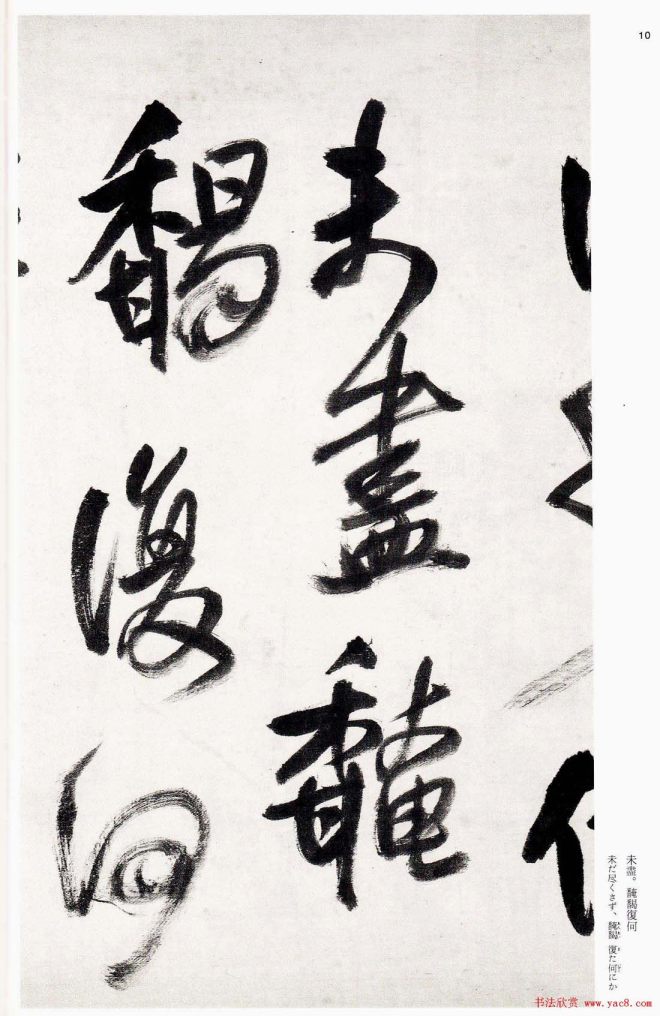 10
未盡馣
馤復何
未盡。馣馤復何
未だ尽くさず、馣馤 復た何にか
书法欣赏 www.yac8.com